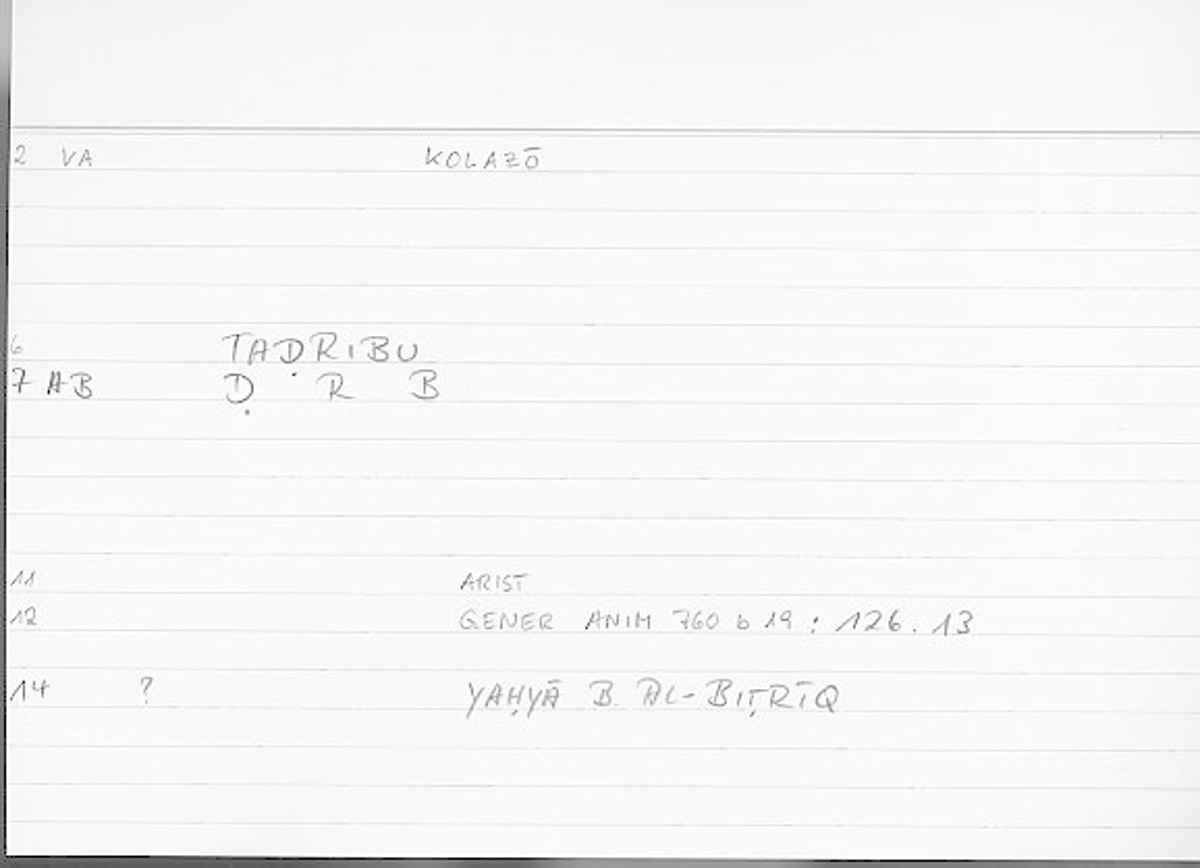 2 VA KOLAZŌ
6 TAḌRIBU
7 AB Ḍ R B
11 ARIST
12 GENER ANIM 760 b 19 : 126. 13
14 ? YAḤYĀ B. AL-BIṬRĪQ